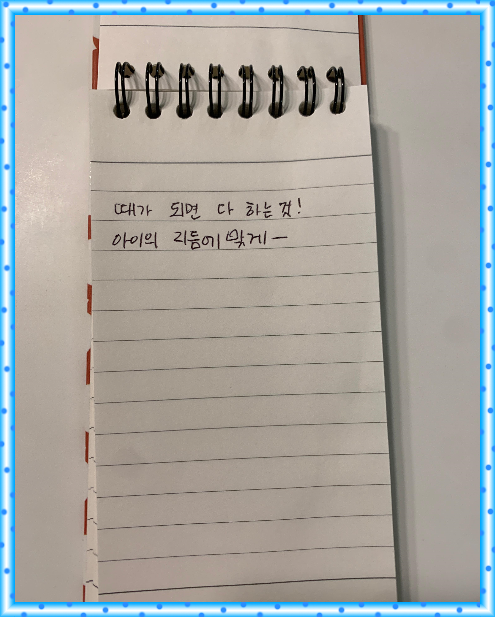 때가 되면 다 하는 것!
아이의 리듬에 맞게 —